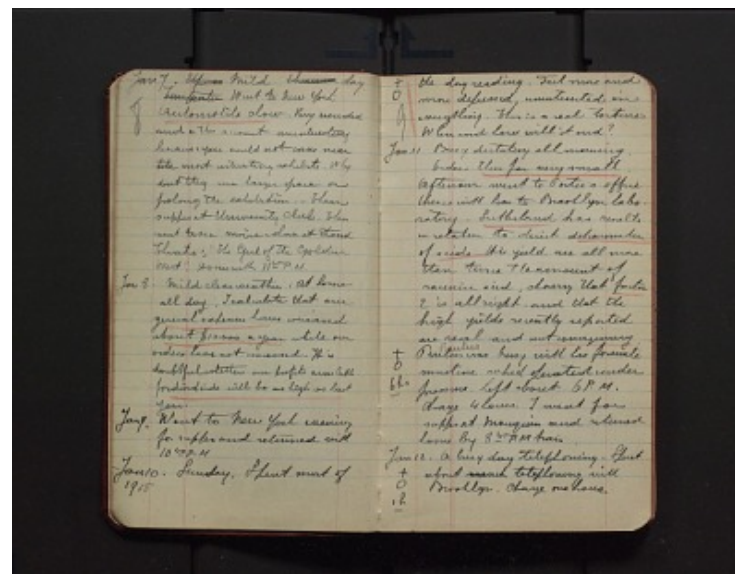 Jan 7. Mild day
Went to New York
Automobile show. Very crowded
and on this account uninteresting
because you could not come near
the most interesting exhibits. Why
dont they use larger space or
prolong the exhibition. Then
supper at University Club. Then
went to see movie show at Strand
Theatre: The Girl of the Golden
West. Home with P.M.
Jan 8. Mild clear weather. At home
all day. I calculate that our
general expenses have increased
about a year while our
orders have not increased. It is
doubtful whether our profits
for dividends will be as high as last
year.
Jan 9. Went to New York evening
for supper and returned with
10 P.M
Jan 10. Sunday. Spent most of
1915
the day reading. Feel more and
more depressed, uninterested in
everything. This is a real torture
When and how will it end?
Jan 11 Busy dictating all morning
Orders thus far very small
Afternoon went to office
then with him to Brooklyn labo-
ratory. Sutherland has results
in relation to direct determination
of acids. His yields are all more
than times the amount of
and, showing that
2 is all right and that the
high yields recently reported
are real and not imaginary
was busy with his
machine which operated under
pressure. Left about 6 P.M.
Charge 4 hours. I went for
supper and returned
home by 8 P.M train
Jan 12. A busy day telephoning. Spent
about telephoning with
Brooklyn. Charge one hour.